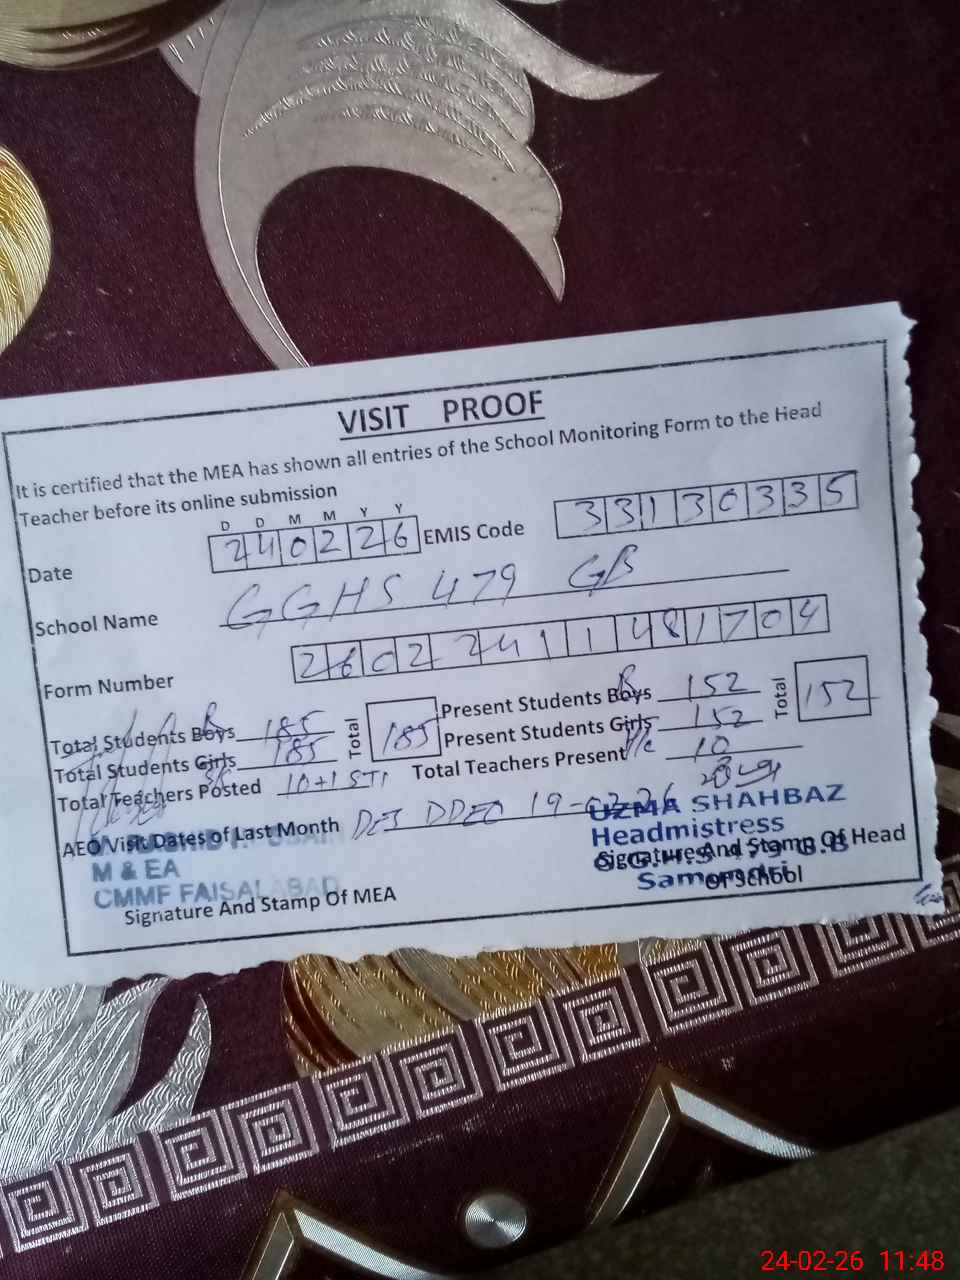 VISIT PROOF
It is certified that the MEA has shown all entries of the School Monitoring Form to the Head
Teacher before its online submission
D D M M Y Y
Date 240226 EMIS Code 33130335
School Name GGHS 479 GB
Form Number 26022411481704
Total Students Boys 185 Total 185 Present Students Boys 152 Total 152
Total Students Girls 185 Present Students Girls 152
Total Teachers Posted 10+1 STI Total Teachers Present 10
AEO Visit Dates of Last Month DEO 19-02-26
UZMA SHAHBAZ
Headmistress
G.G.H.S 479 G.B
Samundri
M & EA
CMMF FAISALABAD
Signature And Stamp Of MEA
Signature And Stamp Of Head
Of School
24-02-26 11:48